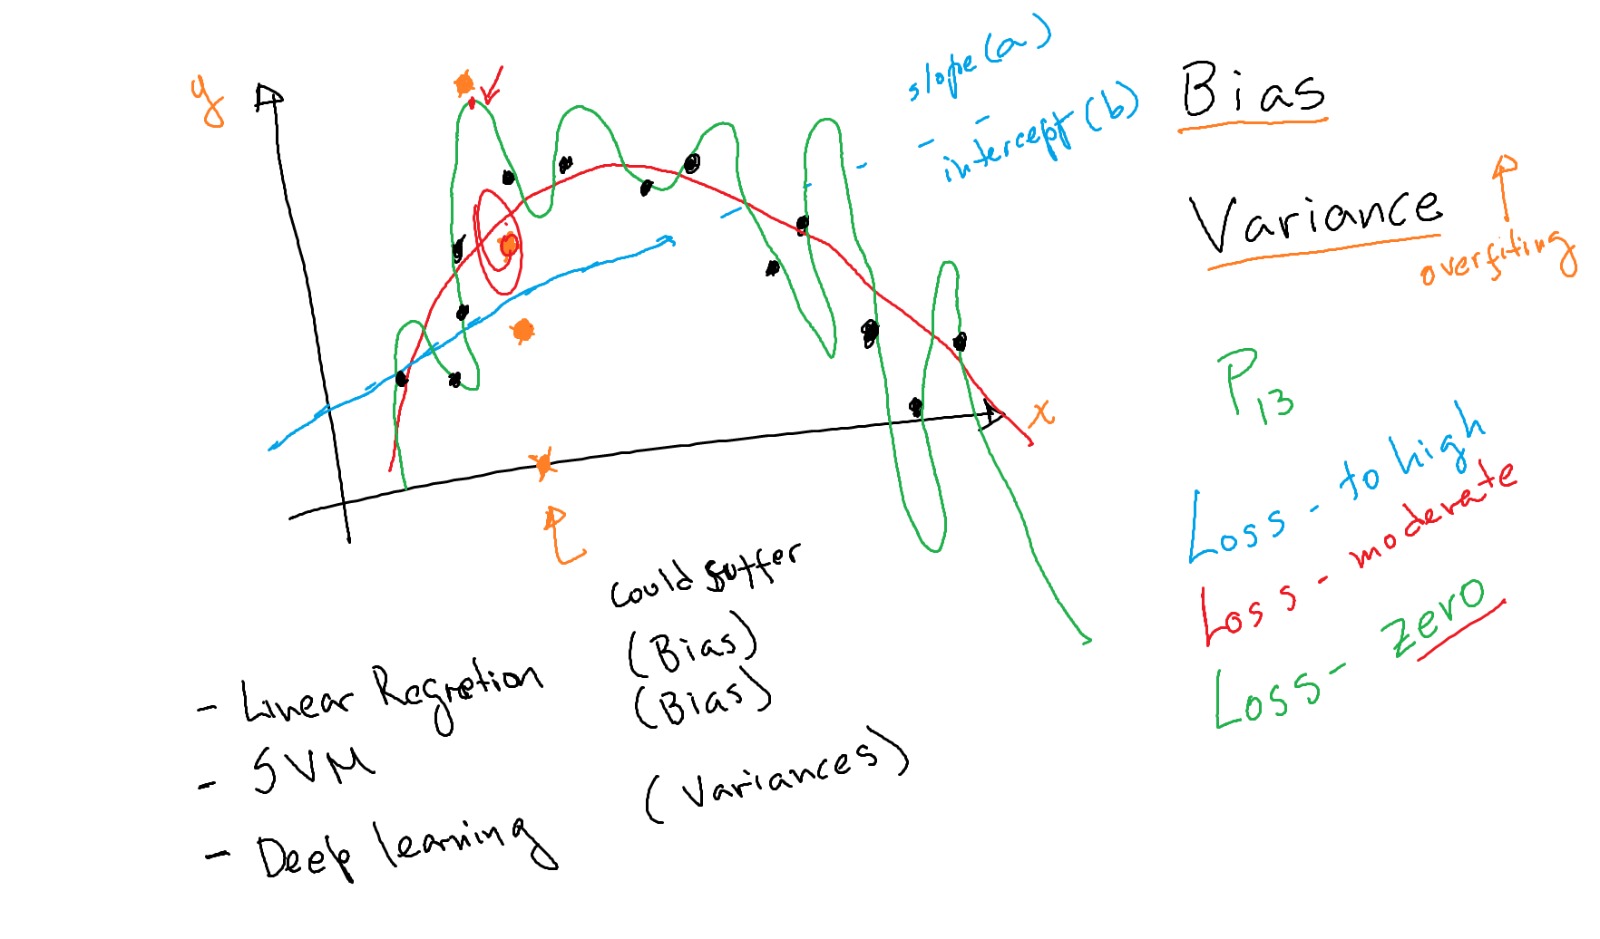 y
slope (a)
intercept (b)
Bias
Variance
overfiting
x
P13
Loss - to high
Loss - moderate
Loss - zero
Could suffer
- Linear Regretion (Bias)
- SVM (Bias)
- Deep learning (Variances)